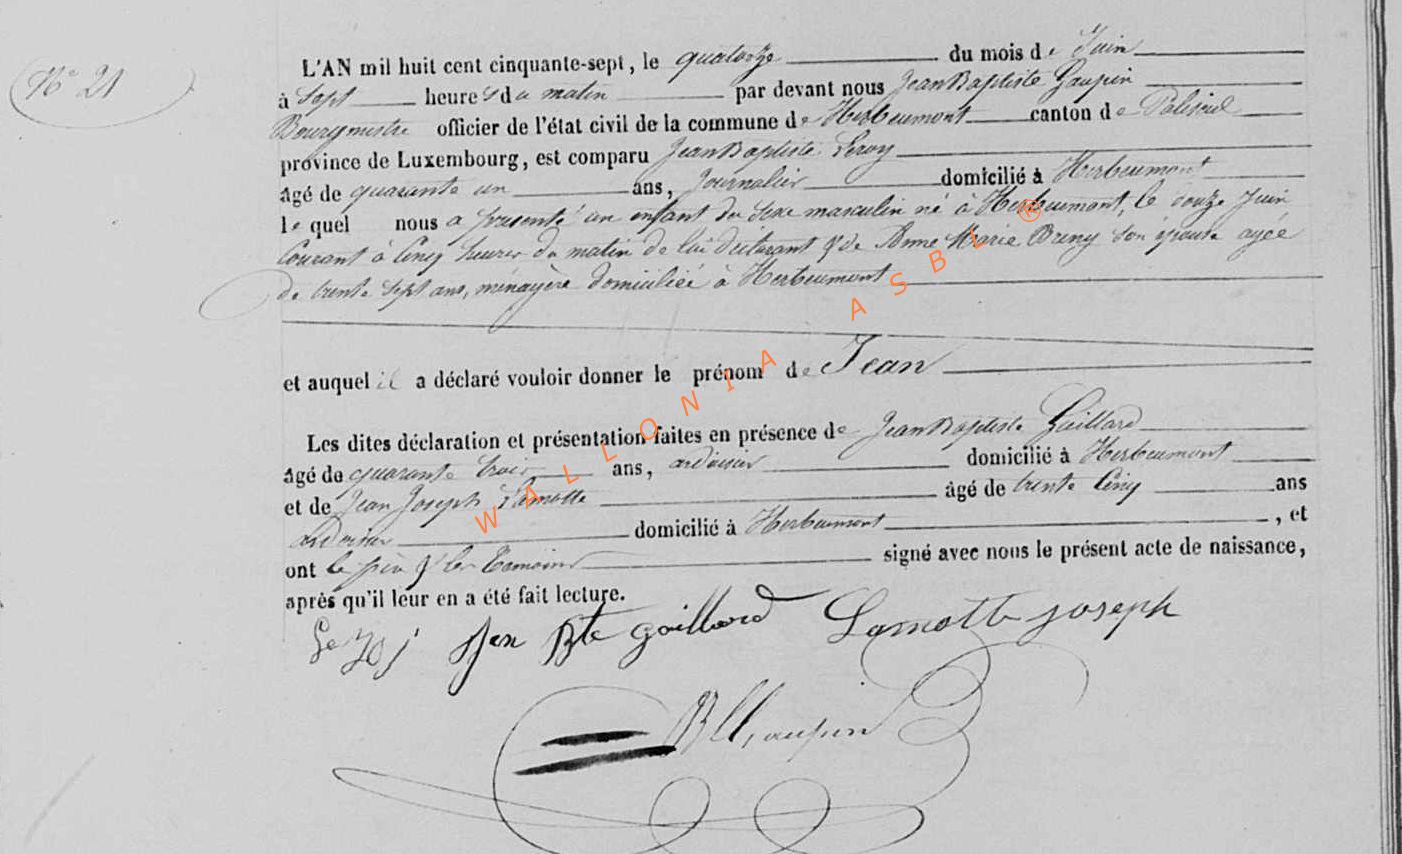 N° 21
L'AN mil huit cent cinquante-sept, le quatorze du mois de Juin
à Sept heures du matin par devant nous Jean Baptiste Gaupin
Bourgmestre officier de l'état civil de la commune de Herbeumont canton de Paliseul
province de Luxembourg, est comparu Jean Baptiste Leroy
âgé de quarante un ans, Journalier domicilié à Herbeumont
le quel nous a présenté un enfant du sexe masculin né à Herbeumont, le douze Juin
Courant à Cinq heures du matin de lui déclarant & de Anne Marie Breny son épouse agée
de trente sept ans, ménagère domiciliée à Herbeumont
et auquel il a déclaré vouloir donner le prénom de Jean
Les dites déclaration et présentation faites en présence de Jean Baptiste Gaillard
âgé de quarante trois ans, ardoisier domicilié à Herbeumont
et de Jean Joseph Lamotte âgé de trente Cinq ans
ardoisier domicilié à Herbeumont, et
ont le père & les Témoins signé avec nous le présent acte de naissance,
après qu'il leur en a été fait lecture.
Jen Bte gaillard Lamotte joseph
WALLONIA ASBL ®